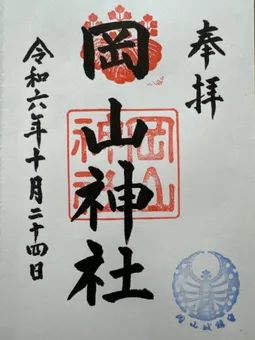 奉拝
岡山神社
岡山神社
令和六年十月二十四日
岡山城鎮守